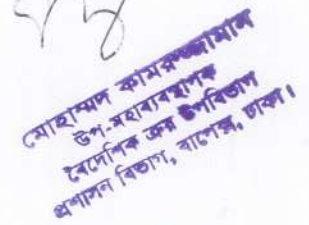 মোহাম্মদ কামরুজ্জামান
উপ-মহাব্যবস্থাপক
বৈদেশিক ক্রয় উপবিভাগ
প্রশাসন বিভাগ, বাপেক্স, ঢাকা।